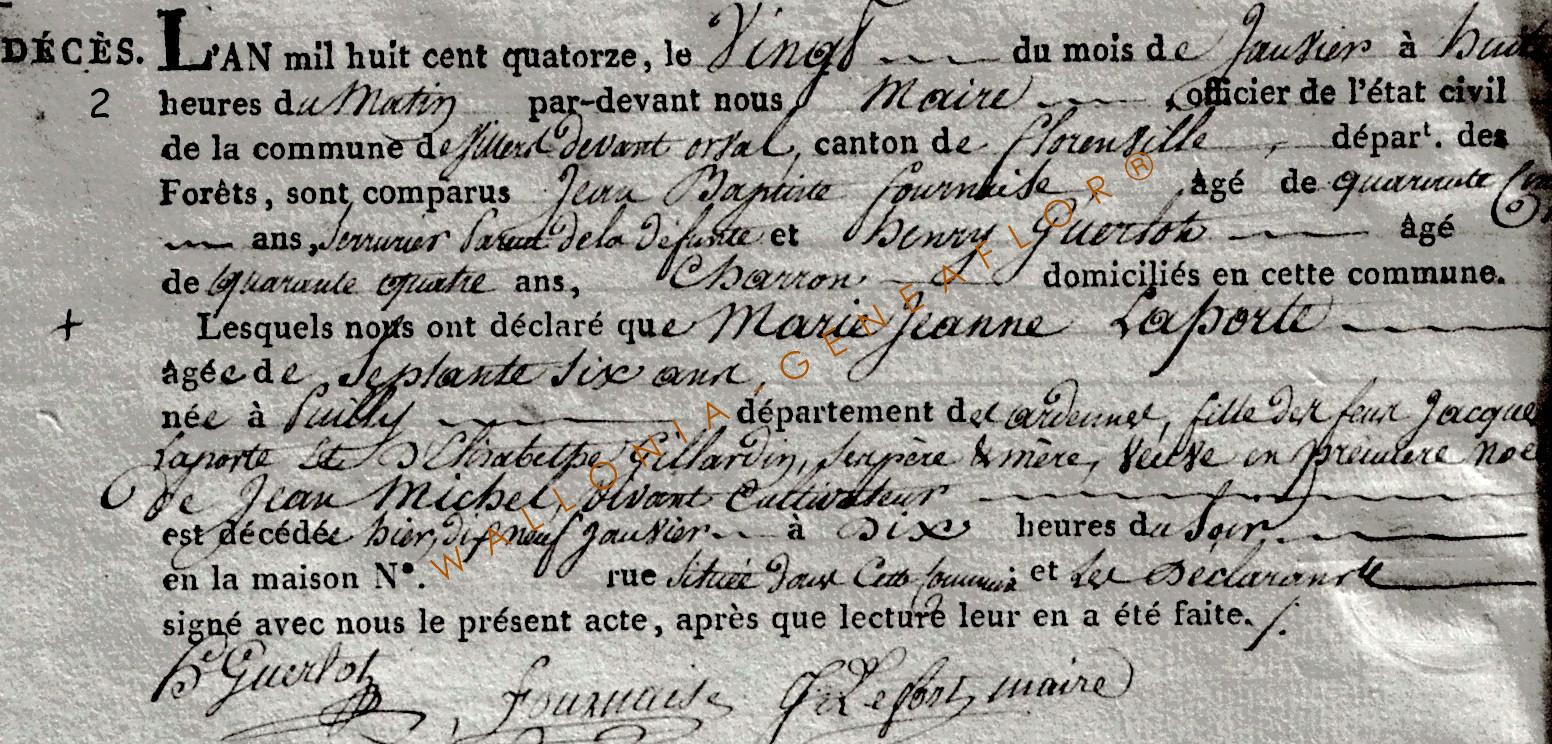 DÉCÈS. L'AN mil huit cent quatorze, le Vingt du mois de Janvier à huit
2 heures du Matin par-devant nous Maire officier de l'état civil
de la commune de Villers devant orval, canton de florenville, départ. des
Forêts, sont comparus Jean Baptiste fournaise âgé de quarante Cinq
ans, Serrurier Parent de la défunte et henry Guerlot âgé
de quarante quatre ans, Charron domiciliés en cette commune.
+ Lesquels nous ont déclaré que Marie Jeanne Laporte
âgée de Septante Six ans,
née à Puilly département des ardennes, fille des feux Jacque
Laporte Et D'Elisabethe Gillardin, ses père & mère, Veuve en première noce
de Jean Michel, vivant Cultivateur
est décédée hier, dix neuf Janvier à Dix heures du Soir
en la maison N°. rue Située dans Cette Commune et Les Declarants
signé avec nous le présent acte, après que lecture leur en a été faite. /.
hri Guerlot fournaise Lefort maire
WALLONIA.GENEAFLOR®